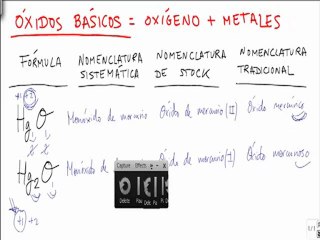 ÓXIDOS BÁSICOS = OXÍGENO + METALES
FÓRMULA NOMENCLATURA SISTEMÁTICA NOMENCLATURA DE STOCK NOMENCLATURA TRADICIONAL
+1 +2
HgO Monóxido de mercurio Óxido de mercurio (II) Óxido mercúrico
2 2
Hg2O Monóxido de Óxido de mercurio (I) Óxido mercurioso
+1 +2
Capture Effects
Delete